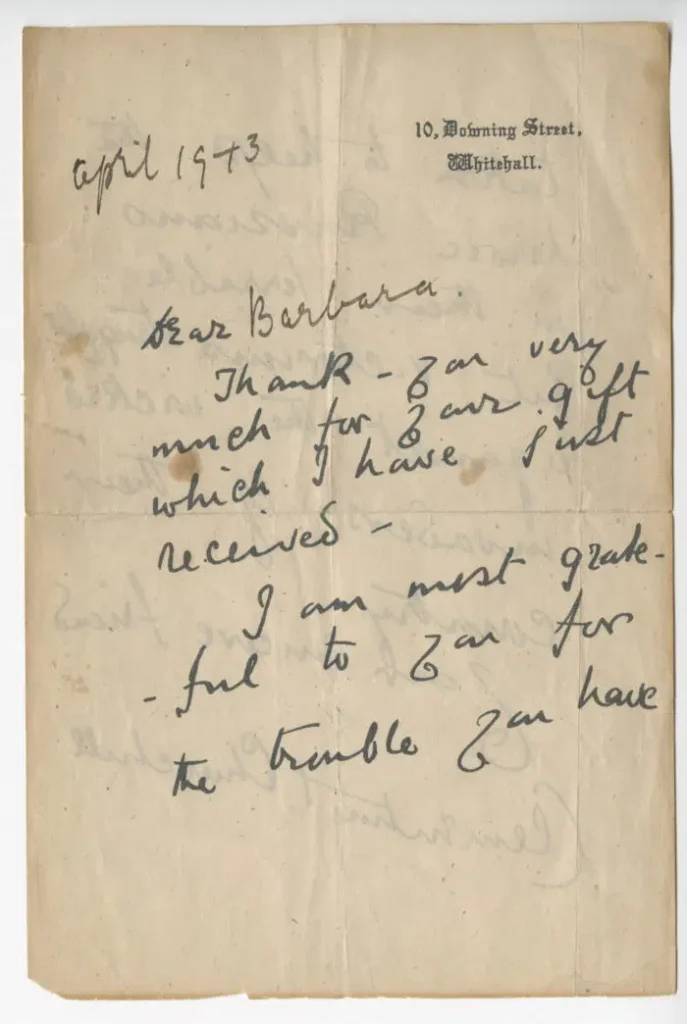 10, Downing Street,
Whitehall.
April 1943
Dear Barbara.
Thank - you very
much for your gift
which I have just
received -
I am most grate-
- ful to you for
the trouble you have